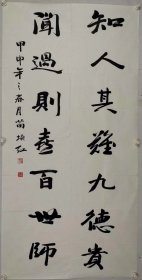 知人其難九德貴
聞過則喜百世師
甲申年之春月